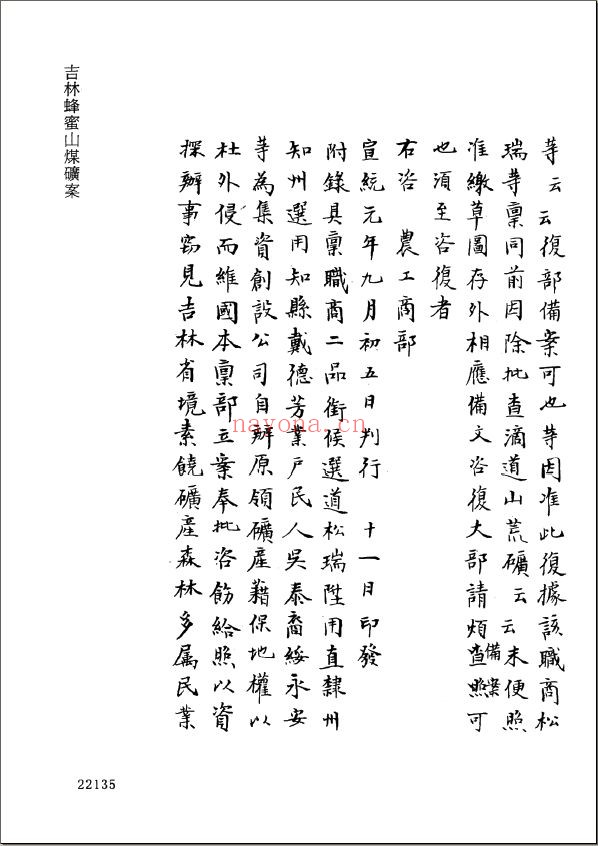 等云云復部備案可也等因准此復據該職商松
瑞等稟同前因除批查滴道山荒礦云云未便照
准繳草圖存外相應備文咨復大部請煩查照備案可
也須至咨復者
右咨 農工商部
宣統元年九月初五日判行 十一日印發
附錄具稟職商二品銜候選道松瑞陞用直隸州
知州選用知縣戴德芳業戶民人吳泰裔綏永安
等為集資創設公司自辦原領礦產藉保地權以
杜外侵而維國本稟部立案奉批咨飭給照以資
探辦事竊見吉林省境素饒礦產森林多属民業
吉林蜂蜜山煤礦案
22135
nayona.cn